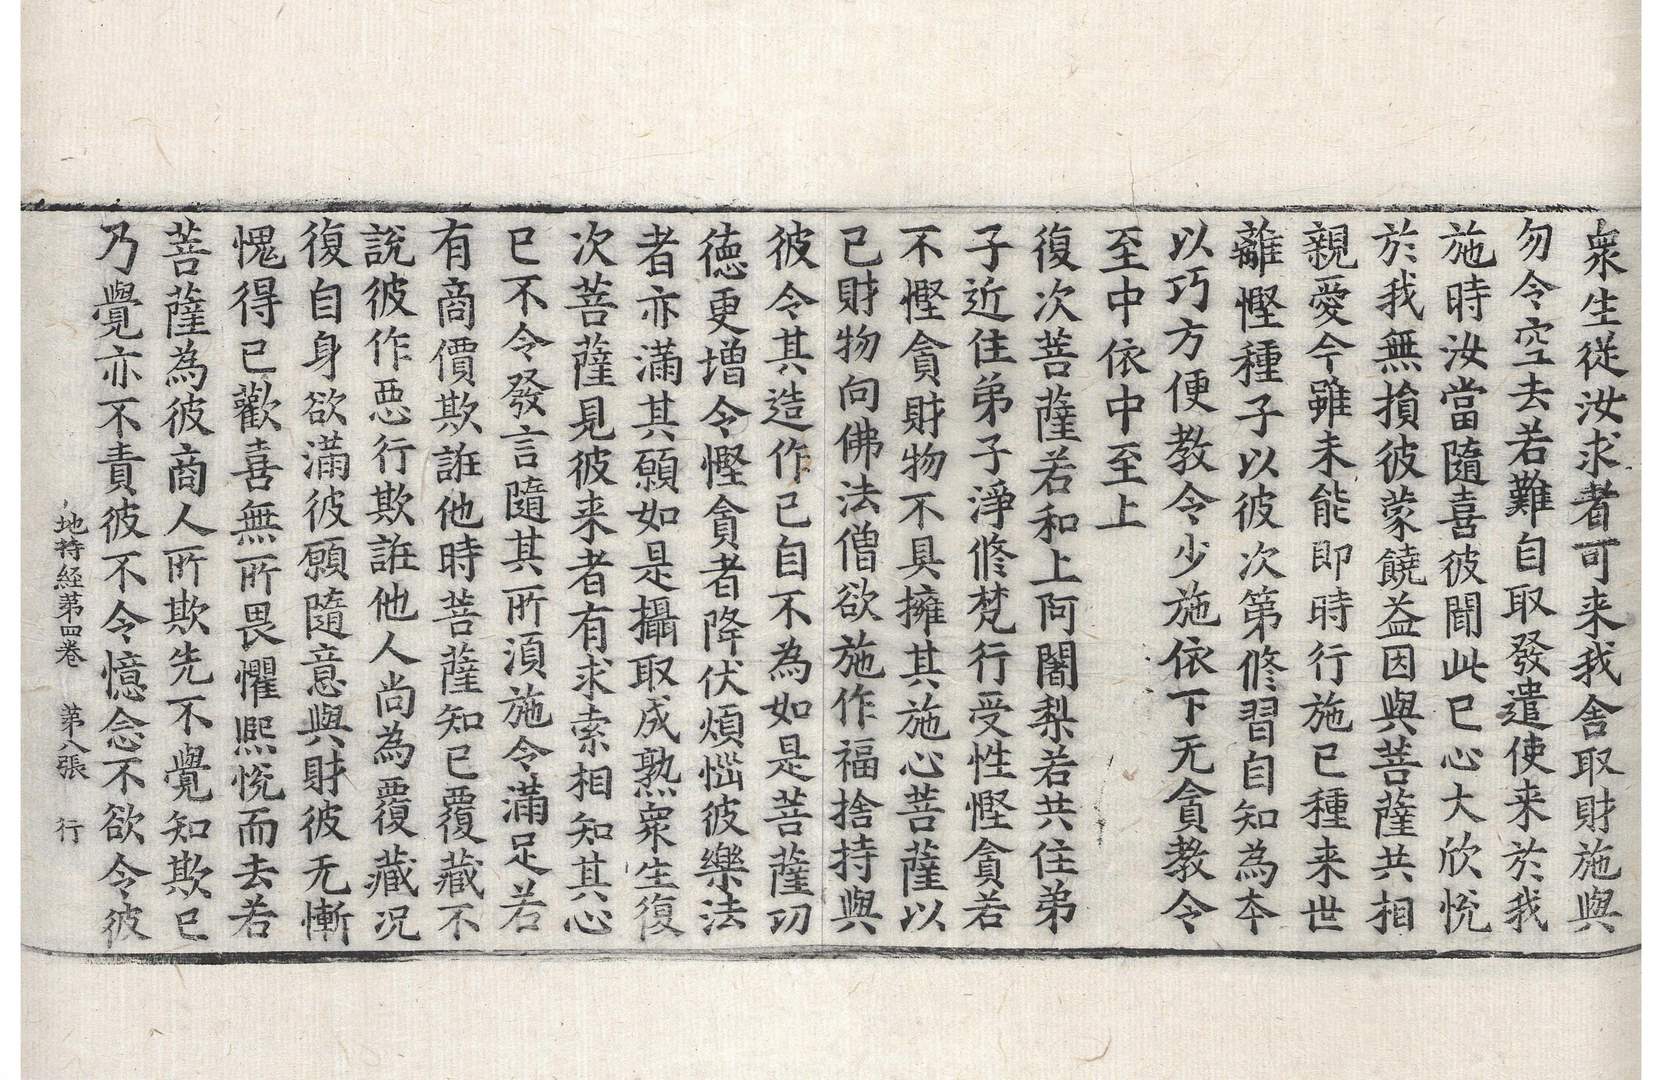 衆生從汝求者可来我舎取財施與
勿令空去若難自取發遣使来於我
施時汝當隨喜彼聞此已心大欣悦
於我無損彼蒙饒益因與菩薩共相
親愛今雖未能即時行施已種来世
離慳種子以彼次第修習自知為本
以巧方便教令少施依下无貪教令
至中依中至上
復次菩薩若和上阿闍梨若共住弟
子近住弟子淨修梵行受性慳貪若
不慳貪財物不具擁其施心菩薩以
已財物向佛法僧欲施作福捨持與
彼令其造作已自不為如是菩薩功
德更增令慳貪者降伏煩惱彼樂法
者亦滿其願如是攝取成熟衆生復
次菩薩見彼来者有求索相知其心
已不令發言隨其所湏施令滿足若
有商價欺誑他時菩薩知已覆藏不
說彼作惡行欺誑他人尚為覆藏况
復自身欲滿彼願隨意與財彼无慚
愧得已歡喜無所畏懼熙悅而去若
菩薩為彼商人所欺先不覺知欺已
乃覺亦不責彼不令憶念不欲令彼
地持経苐四卷 苐八張 行